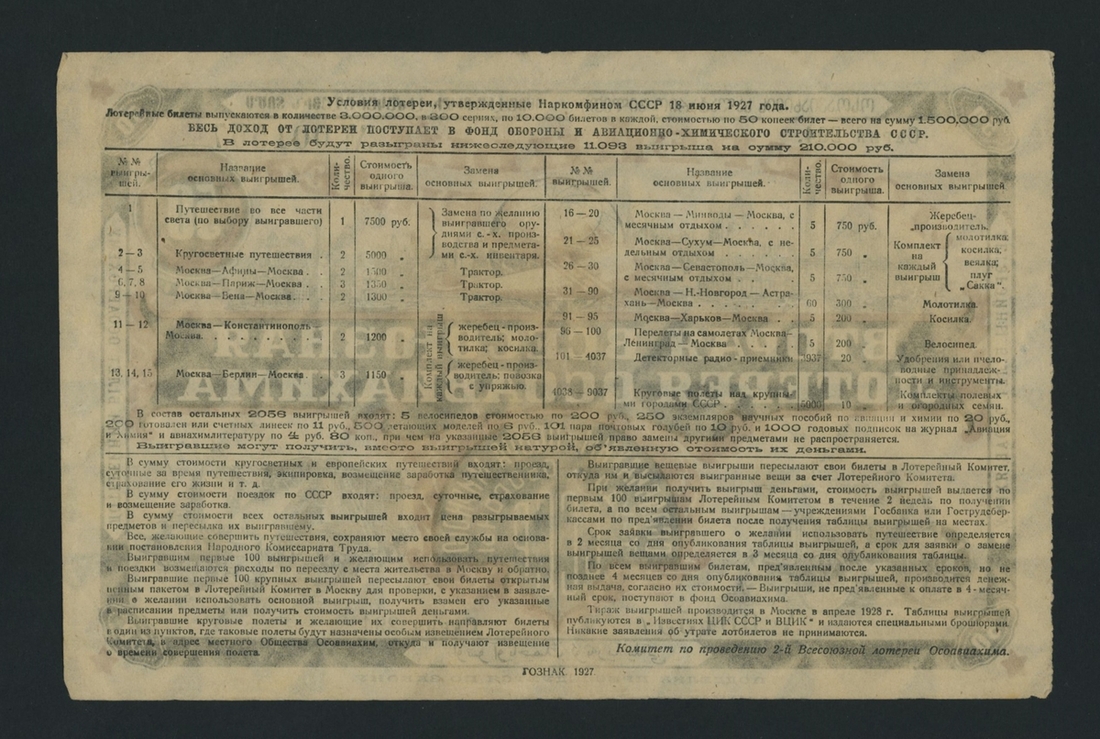 Условия лотереи, утвержденные Наркомфином СССР 18 июня 1927 года.
Лотерейные билеты выпускаются в количестве 3.000.000, в 300 сериях, по 10.000 билетов в каждой, стоимостью по 50 копеек билет — всего на сумму 1.500,000 руб.
ВЕСЬ ДОХОД ОТ ЛОТЕРЕИ ПОСТУПАЕТ В ФОНД ОБОРОНЫ И АВИАЦИОННО-ХИМИЧЕСКОГО СТРОИТЕЛЬСТВА СССР.
В лотерее будут разыграны нижеследующие 11.093 выигрыша на сумму 210.000 руб.
№№ выигры-шей. Название основных выигрышей. Коли-чество. Стоимость одного выигрыша. Замена основных выигрышей.
1 Путешествие во все части света (по выбору выигравшего) 1 7500 руб.
2 — 3 Кругосветные путешествия . 2 5000 „
Замена по желанию выигравшего ору-диями с.-х. произ-водства и предмета-ми с.-х. инвентаря.
4 — 5 Москва—Афины—Москва . 2 1500 „ Трактор.
6, 7, 8 Москва—Париж—Москва . 3 1350 „ Трактор.
9 — 10 Москва—Вена—Москва . . 2 1300 „ Трактор.
11 — 12 Москва—Константинополь—Москва. 2 1200 „ жеребец-произ-водитель; моло-тилка; косилка.
13, 14, 15 Москва—Берлин—Москва. 3 1150 „ жеребец-произ-водитель; повозка с упряжью.
Комплект на каждый выигрыш
№№ выигрышей. Название основных выигрышей. Коли-чество. Стоимость одного выигрыша. Замена основных выигрышей
16 — 20 Москва — Минводы — Москва, с месячным отдыхом 5 750 руб.
21 — 25 Москва—Сухум—Москва, с не-дельным отдыхом 5 750 „
26 — 30 Москва—Севастополь—Москва, с месячным отдыхом 5 750 „
Жеребец-производитель,
Комплект на каждый выигрыш
молотилка; косилка; веялка; плуг „Сакка“.
31 — 90 Москва — Н.-Новгород — Астра-хань—Москва 60 300 „ Молотилка.
91 — 95 Москва—Харьков—Москва 5 200 „ Косилка.
96 — 100 Перелеты на самолетах Москва-Ленинград — Москва 5 200 „ Велосипед.
101 — 4037 Детекторные радио-приемники 3937 20 „ Удобрения или пчело-водные принадлеж-ности и инструменты.
4038 — 9037 Круговые полеты над крупны-ми городами СССР 5000 10 „ Комплекты полевых и огородных семян.
В состав остальных 2056 выигрышей входят: 5 велосипедов стоимостью по 200 руб., 250 экземпляров научных пособий по авиации и химии по 20 руб.,
200 готовален или счетных линеек по 11 руб., 500 летающих моделей по 6 руб., 101 пара почтовых голубей по 10 руб. и 1000 годовых подписок на журнал „Авиция
и Химия“ и авиахимлитературу по 4 руб. 80 коп., при чем на указанные 2056 выигрышей право замены другими предметами не распространяется.
Выигравшие могут получить, вместо выигрышей натурой, об'явленную стоимость их деньгами.
В сумму стоимости кругосветных и европейских путешествий входят: проезд,
суточные за время путешествия, экипировка, возмещение заработка путешественника,
страхование его жизни и т. д.
В сумму стоимости поездок по СССР входят: проезд, суточные, страхование
и возмещение заработка.
В сумму стоимости всех остальных выигрышей входит цена разыгрываемых
предметов и пересылка их выигравшему.
Все, желающие совершить путешествия, сохраняют место своей службы на основа-
нии постановления Народного Комиссариата Труда.
Выигравшим первые 100 выигрышей и желающим использовать путешествия
и поездки возмещаются расходы по переезду с места жительства в Москву и обратно.
Выигравшие первые 100 крупных выигрышей пересылают свои билеты открытым
ценным пакетом в Лотерейный Комитет в Москву для проверки, с указанием в заявле-
нии о желании использовать основной выигрыш, получить взамен его указанные
в расписании предметы или получить стоимость выигрышей деньгами.
Выигравшие круговые полеты и желающие их совершить направляют билеты
в один из пунктов, где таковые полеты будут назначены особым извещением Лотерейного
Комитета, в адрес местного Общества Осоавиахим, откуда и получают извещение
о времени совершения полета.
Выигравшие вещевые выигрыши пересылают свои билеты в Лотерейный Комитет,
откуда им и высылаются выигранные вещи за счет Лотерейного Комитета.
При желании получить выигрыш деньгами, стоимость выигрышей выдается по
первым 100 выигрышам Лотерейным Комитетом в течение 2 недель по получении
билета, а по всем остальным выигрышам—учреждениями Госбанка или Гострудсбер-
кассами по пред'явлении билета после получения таблицы выигрышей на местах.
Срок заявки выигравшего о желании использовать путешествие определяется
в 2 месяца со дня опубликования таблицы выигрышей, а срок для заявки о замене
выигрышей вещами определяется в 3 месяца со дня опубликования таблицы.
По всем выигравшим билетам, пред'явленным после указанных сроков, но не
позднее 4 месяцев со дня опубликования таблицы выигрышей, производится денеж-
ная выдача, согласно их стоимости.—Выигрыши, не пред'явленные к оплате в 4-месяч-
ный срок, поступают в фонд Осоавиахима.
Тираж выигрышей производится в Москве в апреле 1928 г. Таблицы выигрышей
публикуются в „Известиях ЦИК СССР и ВЦИК“ и издаются специальными брошюрами.
Никакие заявления об утрате лотбилетов не принимаются.
Комитет по проведению 2-й Всесоюзной лотереи Осоавиахима.
ГОЗНАК. 1927